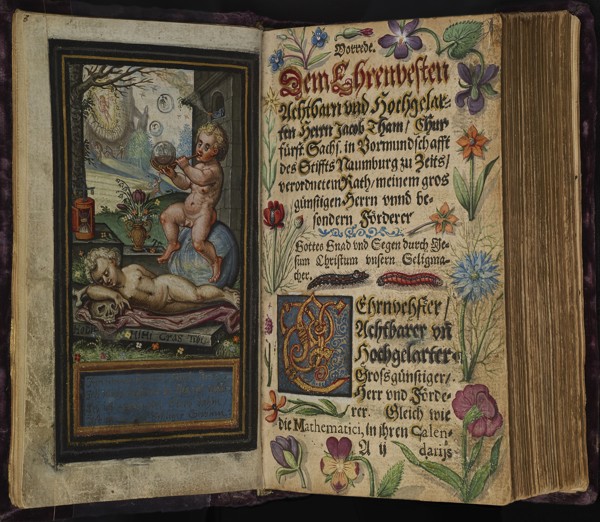 HODIE MIHI CRAS TIBI
Vorrede.
Dem Ehrenvesten
Achtbarn vnd Hochgelar-
ten Herrn Jacob Tham / Chur
fürst. Sachs. in Vormundschafft
des Stiffts Naumburg zu Zeits /
verordneten Rath / meinem gros
günstigen Herrn vnnd be-
sondern Förderer
Gottes Gnad vnd Segen durch Je-
sum Christum vnsern Seligma-
cher,
EHrnvehster /
Achtbarer vñ
Hochgelarter
Grosgünstiger /
Herr vnd Förde-
rer. Gleich wie
die Mathematici, in ihren Calen-
A ij darijs